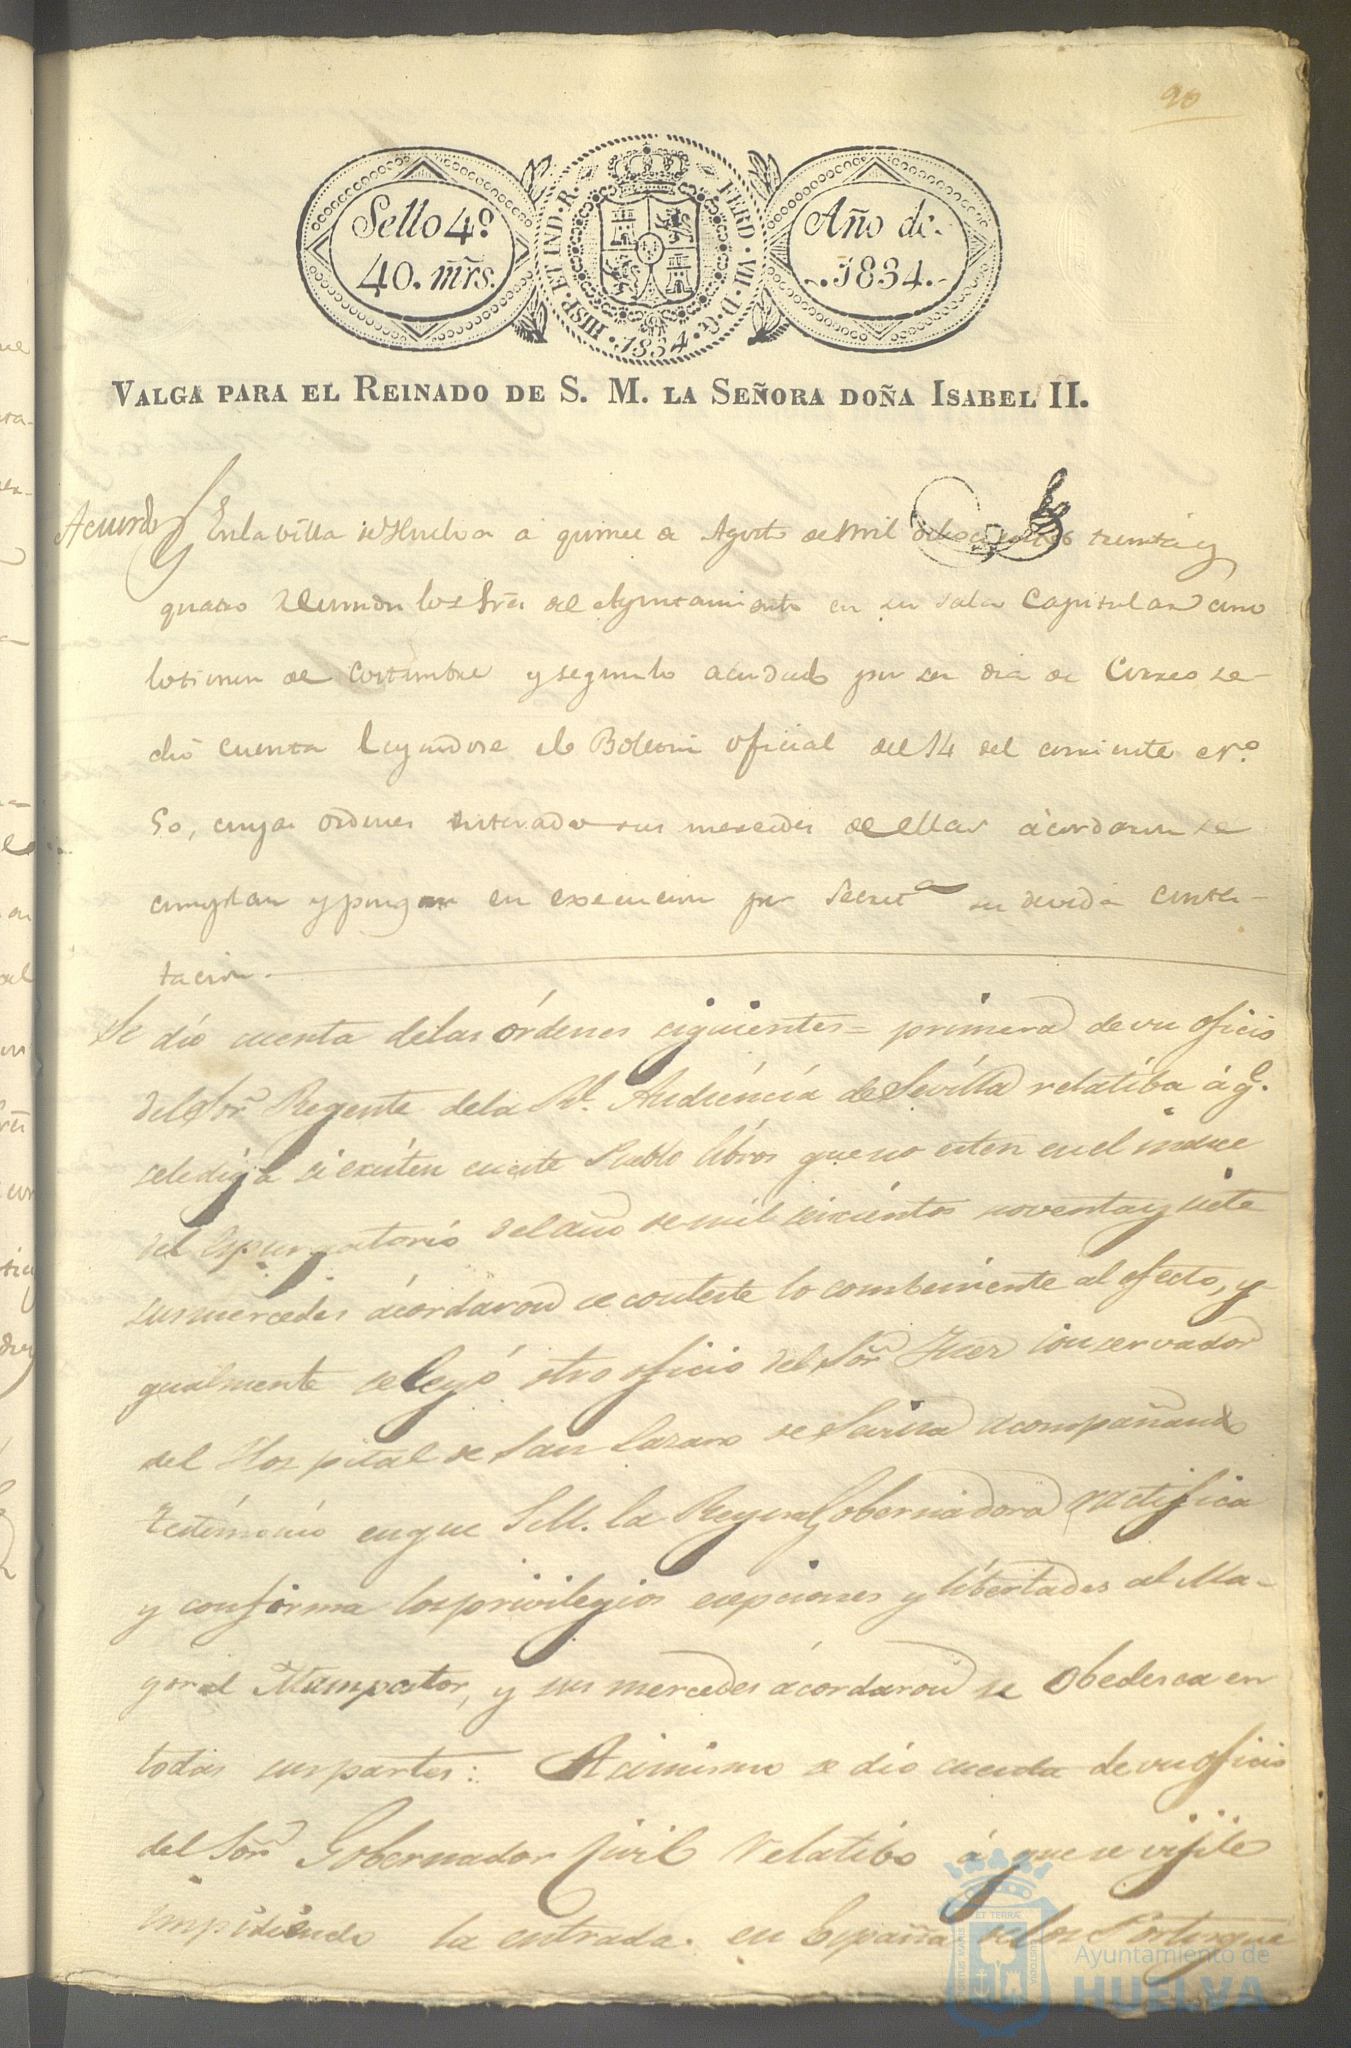 90
Sello 4º.
40. mrs.
HISP. ET IND. R. FERD. VII. D. G. 1834.
Año de
1834.
VALGA PARA EL REINADO DE S. M. LA SEÑORA DOÑA ISABEL II.
Acuerdo
En la Villa de Huelva a quince de Agosto de mil ochocientos treinta y
quatro Reunidos los Sres del Ayuntamiento en su sala Capitular como
lo tienen de costumbre y segun lo acordado por ser dia de Correo se
dió cuenta leyendose el Boletin oficial del 14 del corriente nº.
50, cuyas ordenes enterados sus mercedes de ellas acordaron se
cumplan y pongan en execucion por Secreta su devida contes-
tacion.
Se dío cuenta delas órdenes siguientes = primera de un oficio
del Sor. Regente dela Rl. Audiéncia de Sevilla relatiba á q.e
sele diga si exísten eneste Pueblo líbros que no esten en el indice
del Espurgatorío del año de mil seiscientos noventa y siete
sus mercedes ácordaron se conteste lo combeniente al efecto, y
gualmente se leyó otro oficio del Sor Juez Conservador
del Hospital de San Lazaro de Sevilla acompañando
testimonio en que S.M. la Reyna Gobernadora ratifica
y confirma los privilegios esepciones y libertades al Ma-
yoral Mampostor, y sus mercedes ácordaron se Obedesca en
todas sus partes: Asimismo se dio cuenta de un oficio
del Sor Gobernador Civil relatibo á que se vijile
impidiendo la entrada en España de los Portugue
ET TERRÆ
PORTUS MARIS
CUSTODIA
Ayuntamiento de
HUELVA